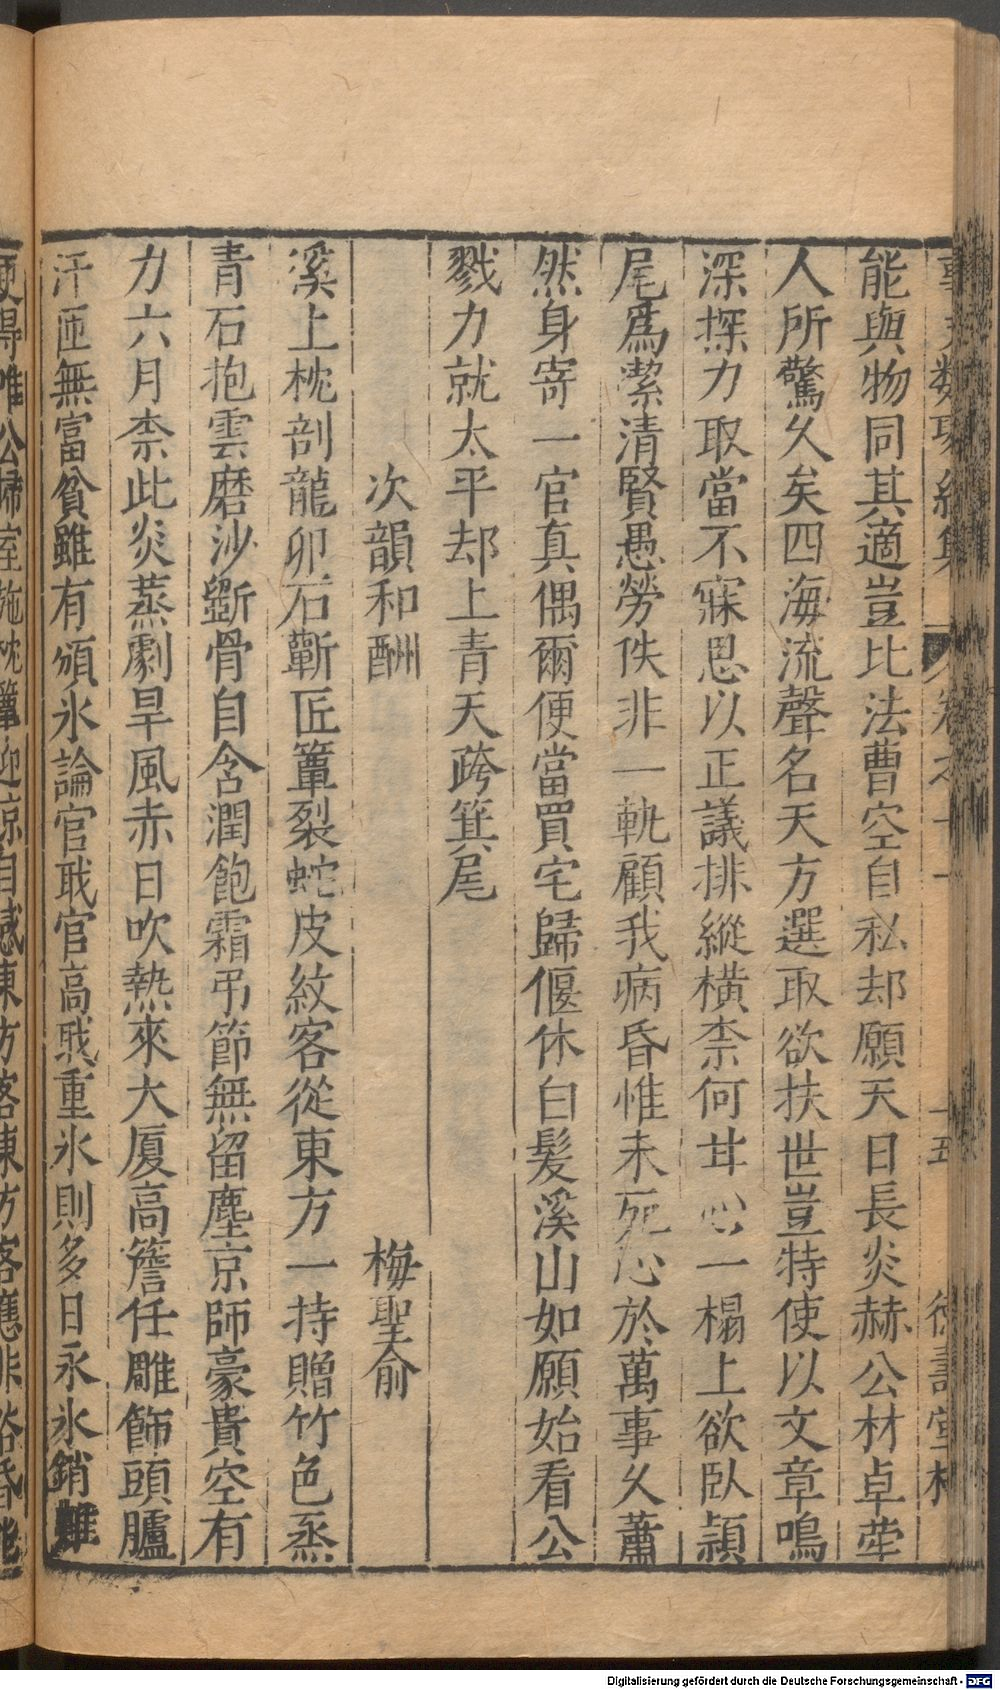 卷之十一　十五　德壽堂梓
能與物同其適豈比法曹空自私却願天日長炎赫公材卓犖
人所驚久矣四海流聲名天方選取欲扶世豈特使以文章鳴
深探力取當不寐思以正議排縱橫柰何甘心一榻上欲臥潁
尾爲潔清賢愚勞佚非一軌顧我病昏惟未死心於萬事久蕭
然身寄一官真偶爾便當買宅歸偃休白髮溪山如願始看公
戮力就太平却上青天跨箕尾
次韻和酬　梅聖俞
溪上枕剖龍卵石蘄匠簟裂蛇皮紋客從東方一持贈竹色蒸
青石抱雲磨沙斷骨自含潤飽霜弔節無留塵京師豪貴空有
力六月柰此炎蒸劇旱風赤日吹熱來大厦高簷任雕飾頭臚
汗匝無富貧雖有頒氷論官職官高職重氷則多日永氷銷難
得唯公掃室施枕簟迎涼自感東方客東方客應非俗昏
Digitalisierung gefördert durch die Deutsche Forschungsgemeinschaft - DFG